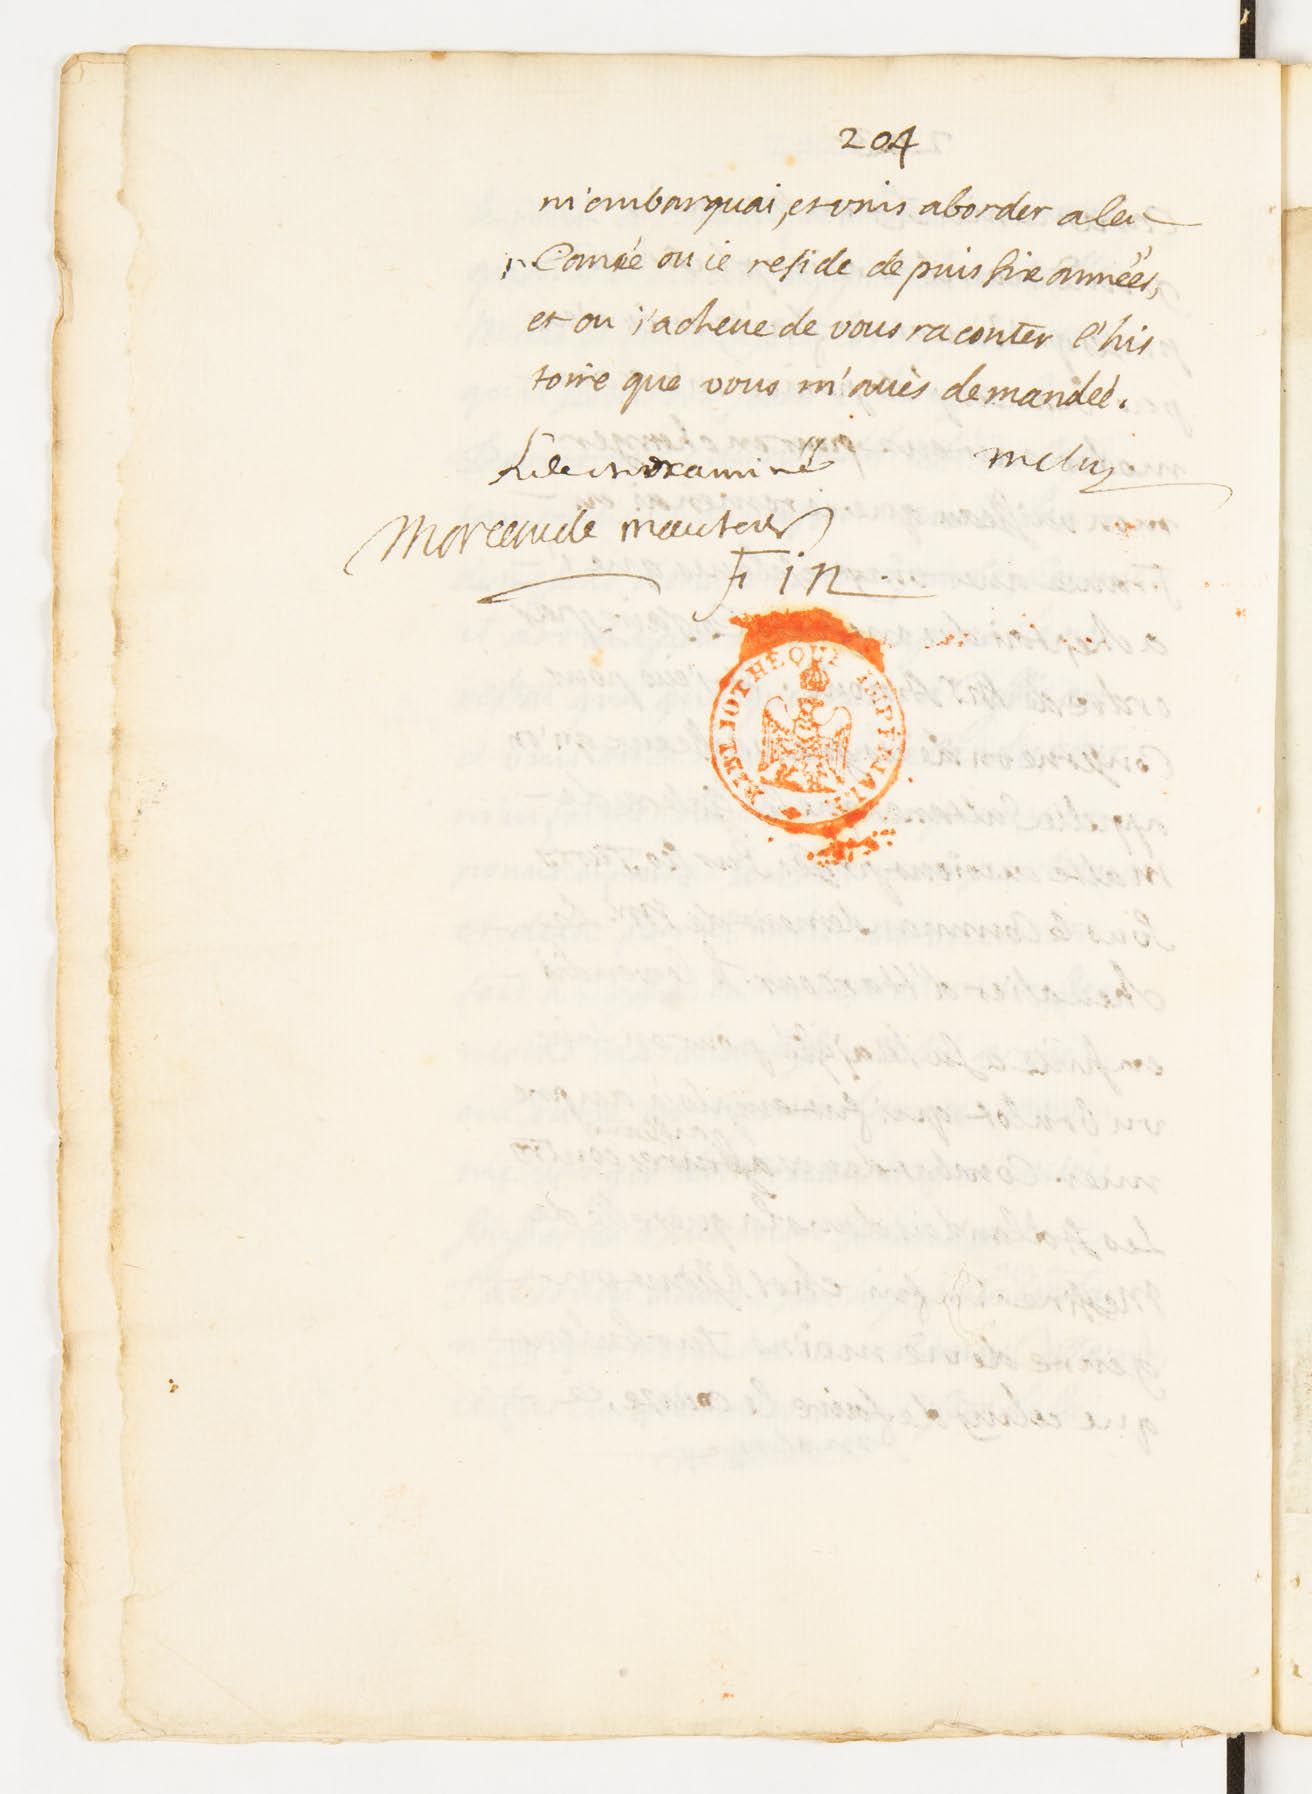 204
m'embarquai, et vins aborder a la
Caneé ou ie reside depuis six années,
et ou j'acheue de vous raconter l'his
toire que vous m'auès demandeé.
Lu et examiné
Moreau de mautour
Fin.
BIBLIOTHÈQUE IMPÉRIALE